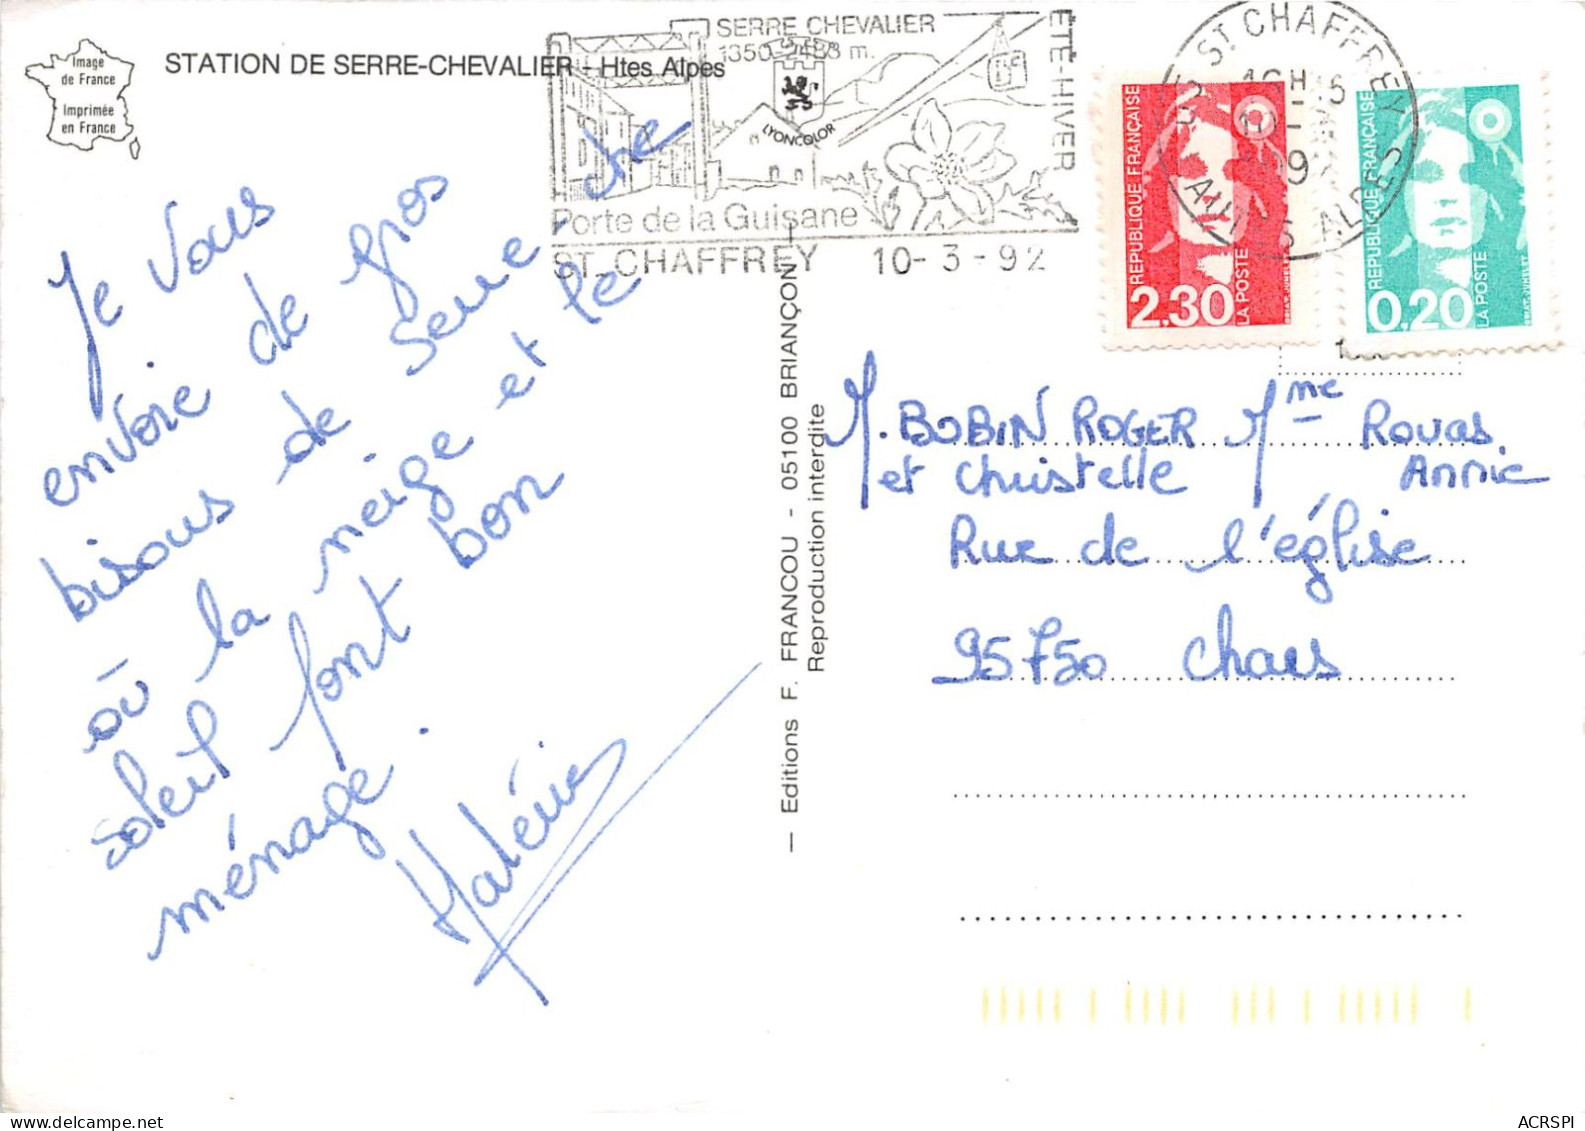 Image
de France
Imprimée
en France
STATION DE SERRE-CHEVALIER - Htes Alpes
SERRE CHEVALIER
1350-2483 m.
ÉTÉ-HIVER
LYONCOLOR
Porte de la Guisane
ST CHAFFREY 10-3-92
ST CHAFFREY
ALPES
RÉPUBLIQUE FRANÇAISE
2,30
LA POSTE
RÉPUBLIQUE FRANÇAISE
0,20
LA POSTE
Je vous
envoie de gros
bisous de Serre che
où la neige et le
soleil font bon
ménage.
— Editions F. FRANCOU - 05100 BRIANÇON —
Reproduction interdite
M. BOBIN ROGER Mme Rouas
et Christelle Annie
Rue de l'église
95750 Chars
ACRSPI